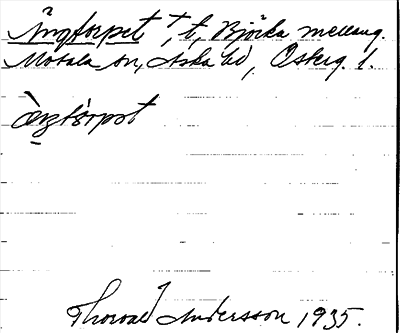 Ängtorpet †, t, Björka mellang.
Motala sn, Aska hd, Österg. l.
Thorvald Andersson 1935.